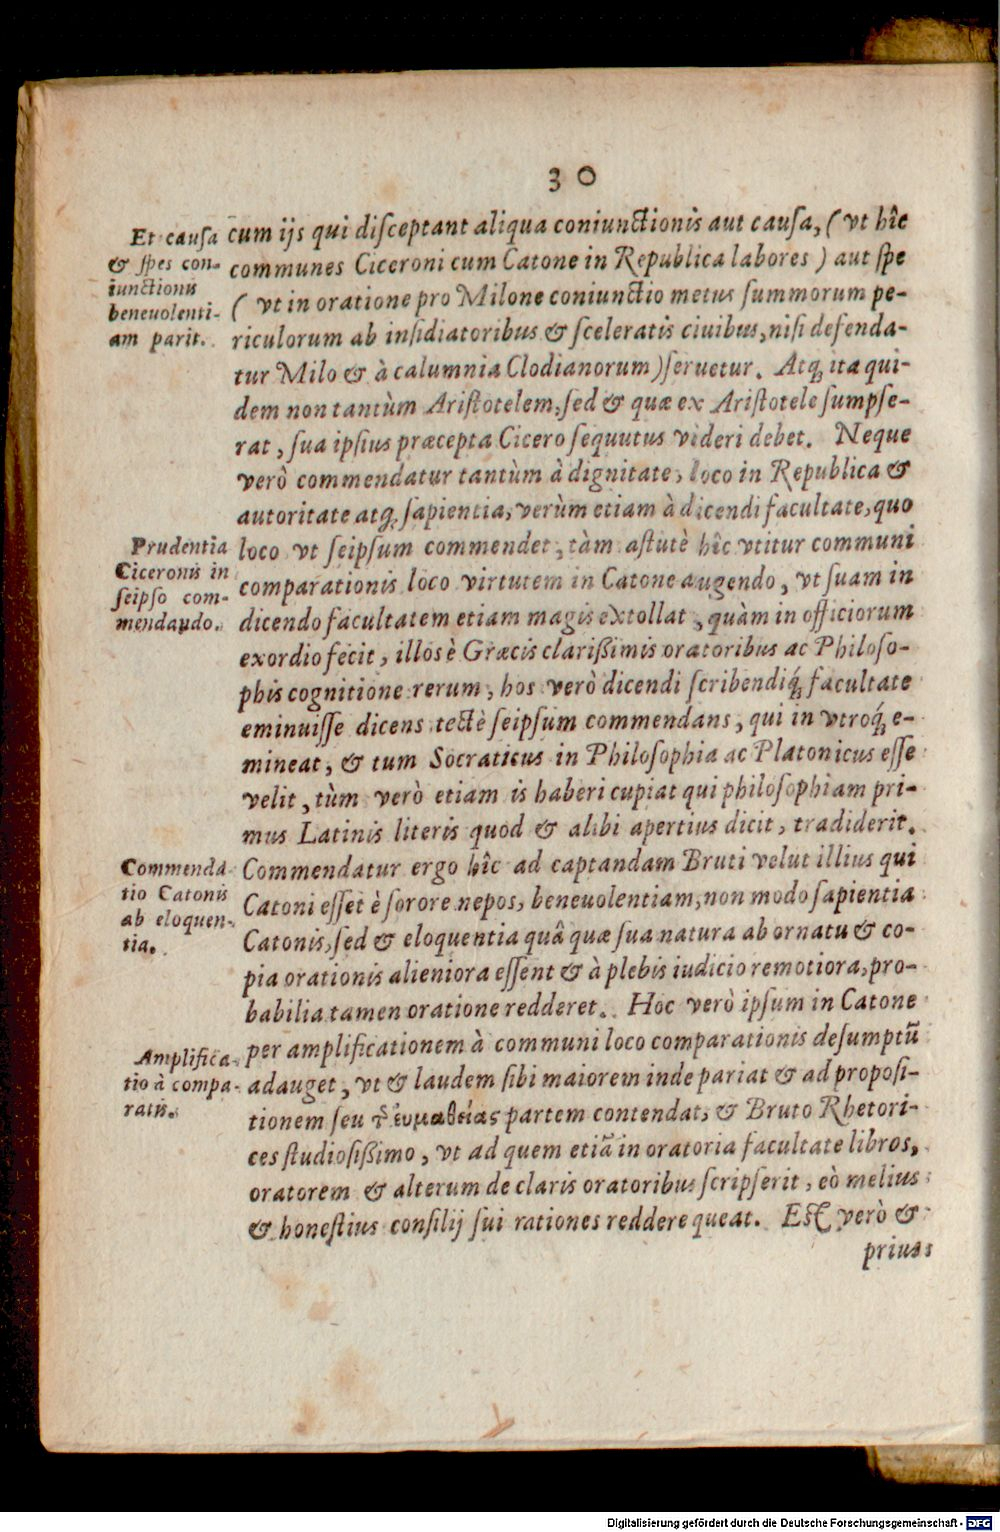 30
Et causa
& spes con-
iunctionis
beneuolenti-
am parit.
cum ijs qui disceptant aliqua coniunctionis aut causa, ( vt hîc
communes Ciceroni cum Catone in Republica labores ) aut spe
( vt in oratione pro Milone coniunctio metus summorum pe-
riculorum ab insidiatoribus & sceleratis ciuibus, nisi defenda-
tur Milo & à calumnia Clodianorum ) seruetur. Atq́; ita qui-
dem non tantùm Aristotelem, sed & quæ ex Aristotele sumpse-
rat, sua ipsius præcepta Cicero sequutus videri debet. Neque
verò commendatur tantùm à dignitate, loco in Republica &
autoritate atq; sapientia, verùm etiam à dicendi facultate, quo
Prudentia
Ciceronis in
seipso com-
mendando.
loco vt seipsum commendet, tàm astutè hîc vtitur communi
comparationis loco virtutem in Catone augendo, vt suam in
dicendo facultatem etiam magis extollat, quàm in officiorum
exordio fecit, illos è Græcis clarißimis oratoribus ac Philoso-
phis cognitione rerum, hos verò dicendi scribendiq́; facultate
eminuisse dicens tectè seipsum commendans, qui in vtroq́; e-
mineat, & tum Socraticus in Philosophia ac Platonicus esse
velit, tùm verò etiam is haberi cupiat qui philosophiam pri-
mus Latinis literis quod & alibi apertius dicit, tradiderit.
Commenda-
tio Catonis
ab eloquen-
tia.
Commendatur ergo hîc ad captandam Bruti velut illius qui
Catoni esset è sorore nepos, beneuolentiam, non modo sapientia
Catonis, sed & eloquentia quâ quæ sua natura ab ornatu & co-
pia orationis alieniora essent & à plebis iudicio remotiora, pro-
babilia tamen oratione redderet. Hoc verò ipsum in Catone
Amplifica-
tio à compa-
ratis.
per amplificationem à communi loco comparationis desumptũ
adauget, vt & laudem sibi maiorem inde pariat & ad proposi-
tionem seu τ͂ ἐυμαθείας partem contendat, & Bruto Rhetori-
ces studiosißimo, vt ad quem etiã in oratoria facultate libros,
oratorem & alterum de claris oratoribus scripserit, eò melius
& honestius consilij sui rationes reddere queat. Est verò &
prius
Digitalisierung gefördert durch die Deutsche Forschungsgemeinschaft - DFG